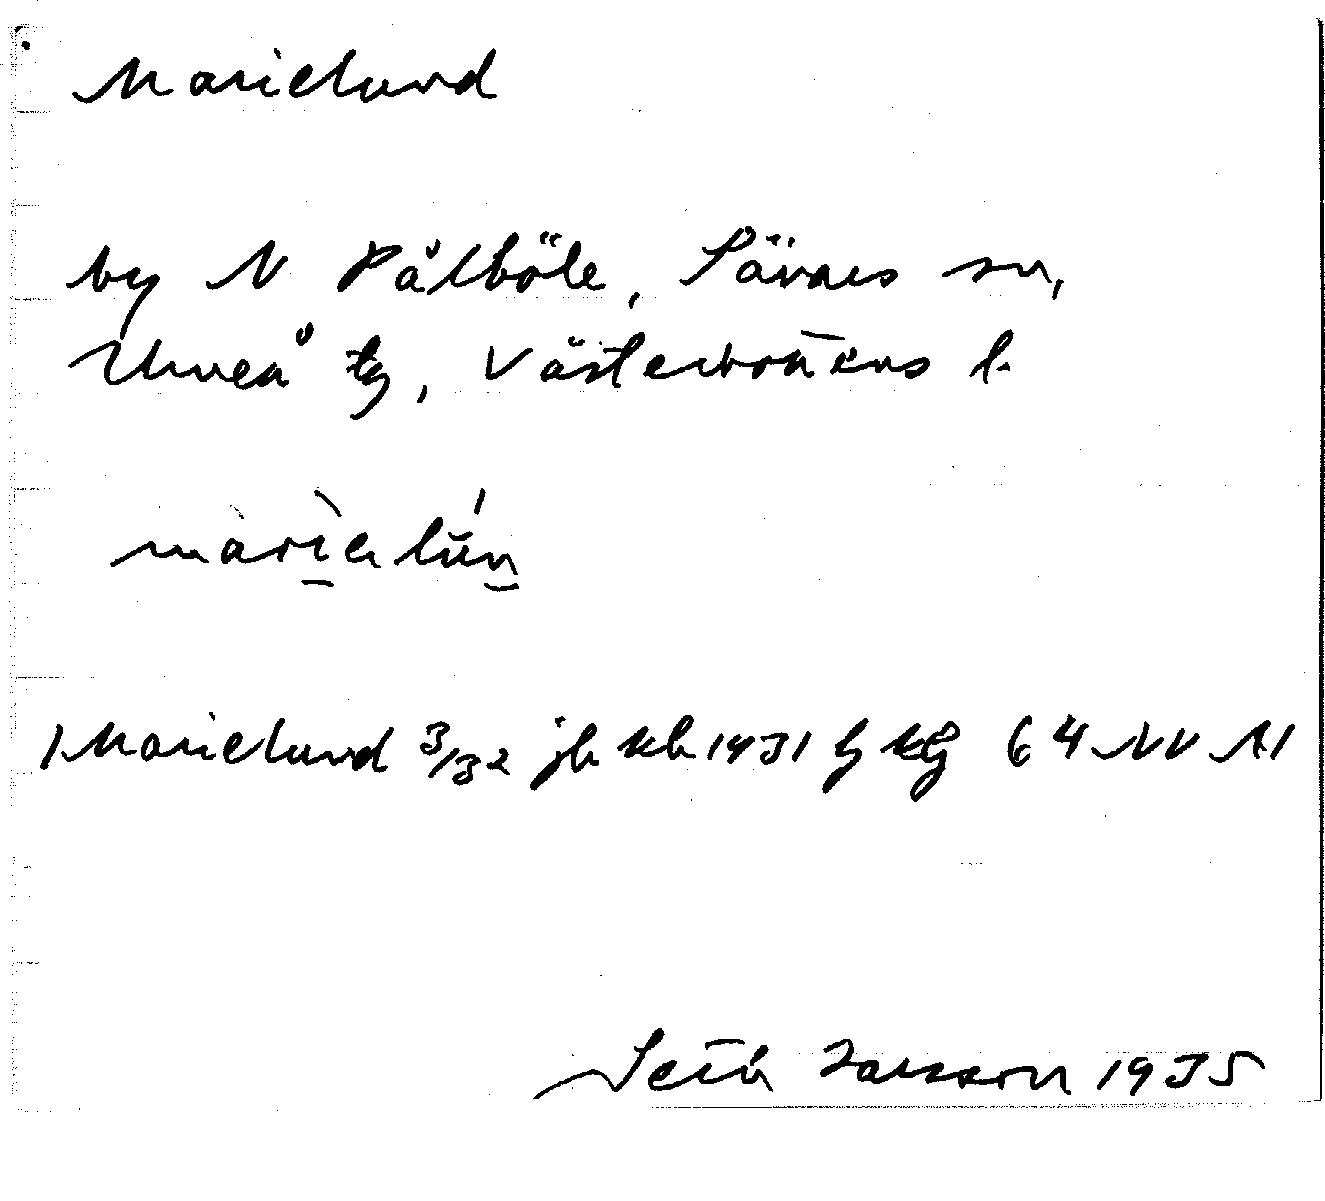 Marielund
by N Pålböle, Sävars sn,
Umeå tg, Västerbottens l.
Marielund 3/32 jb kb 1931 kg 64 NV
Seth Larsson 1935